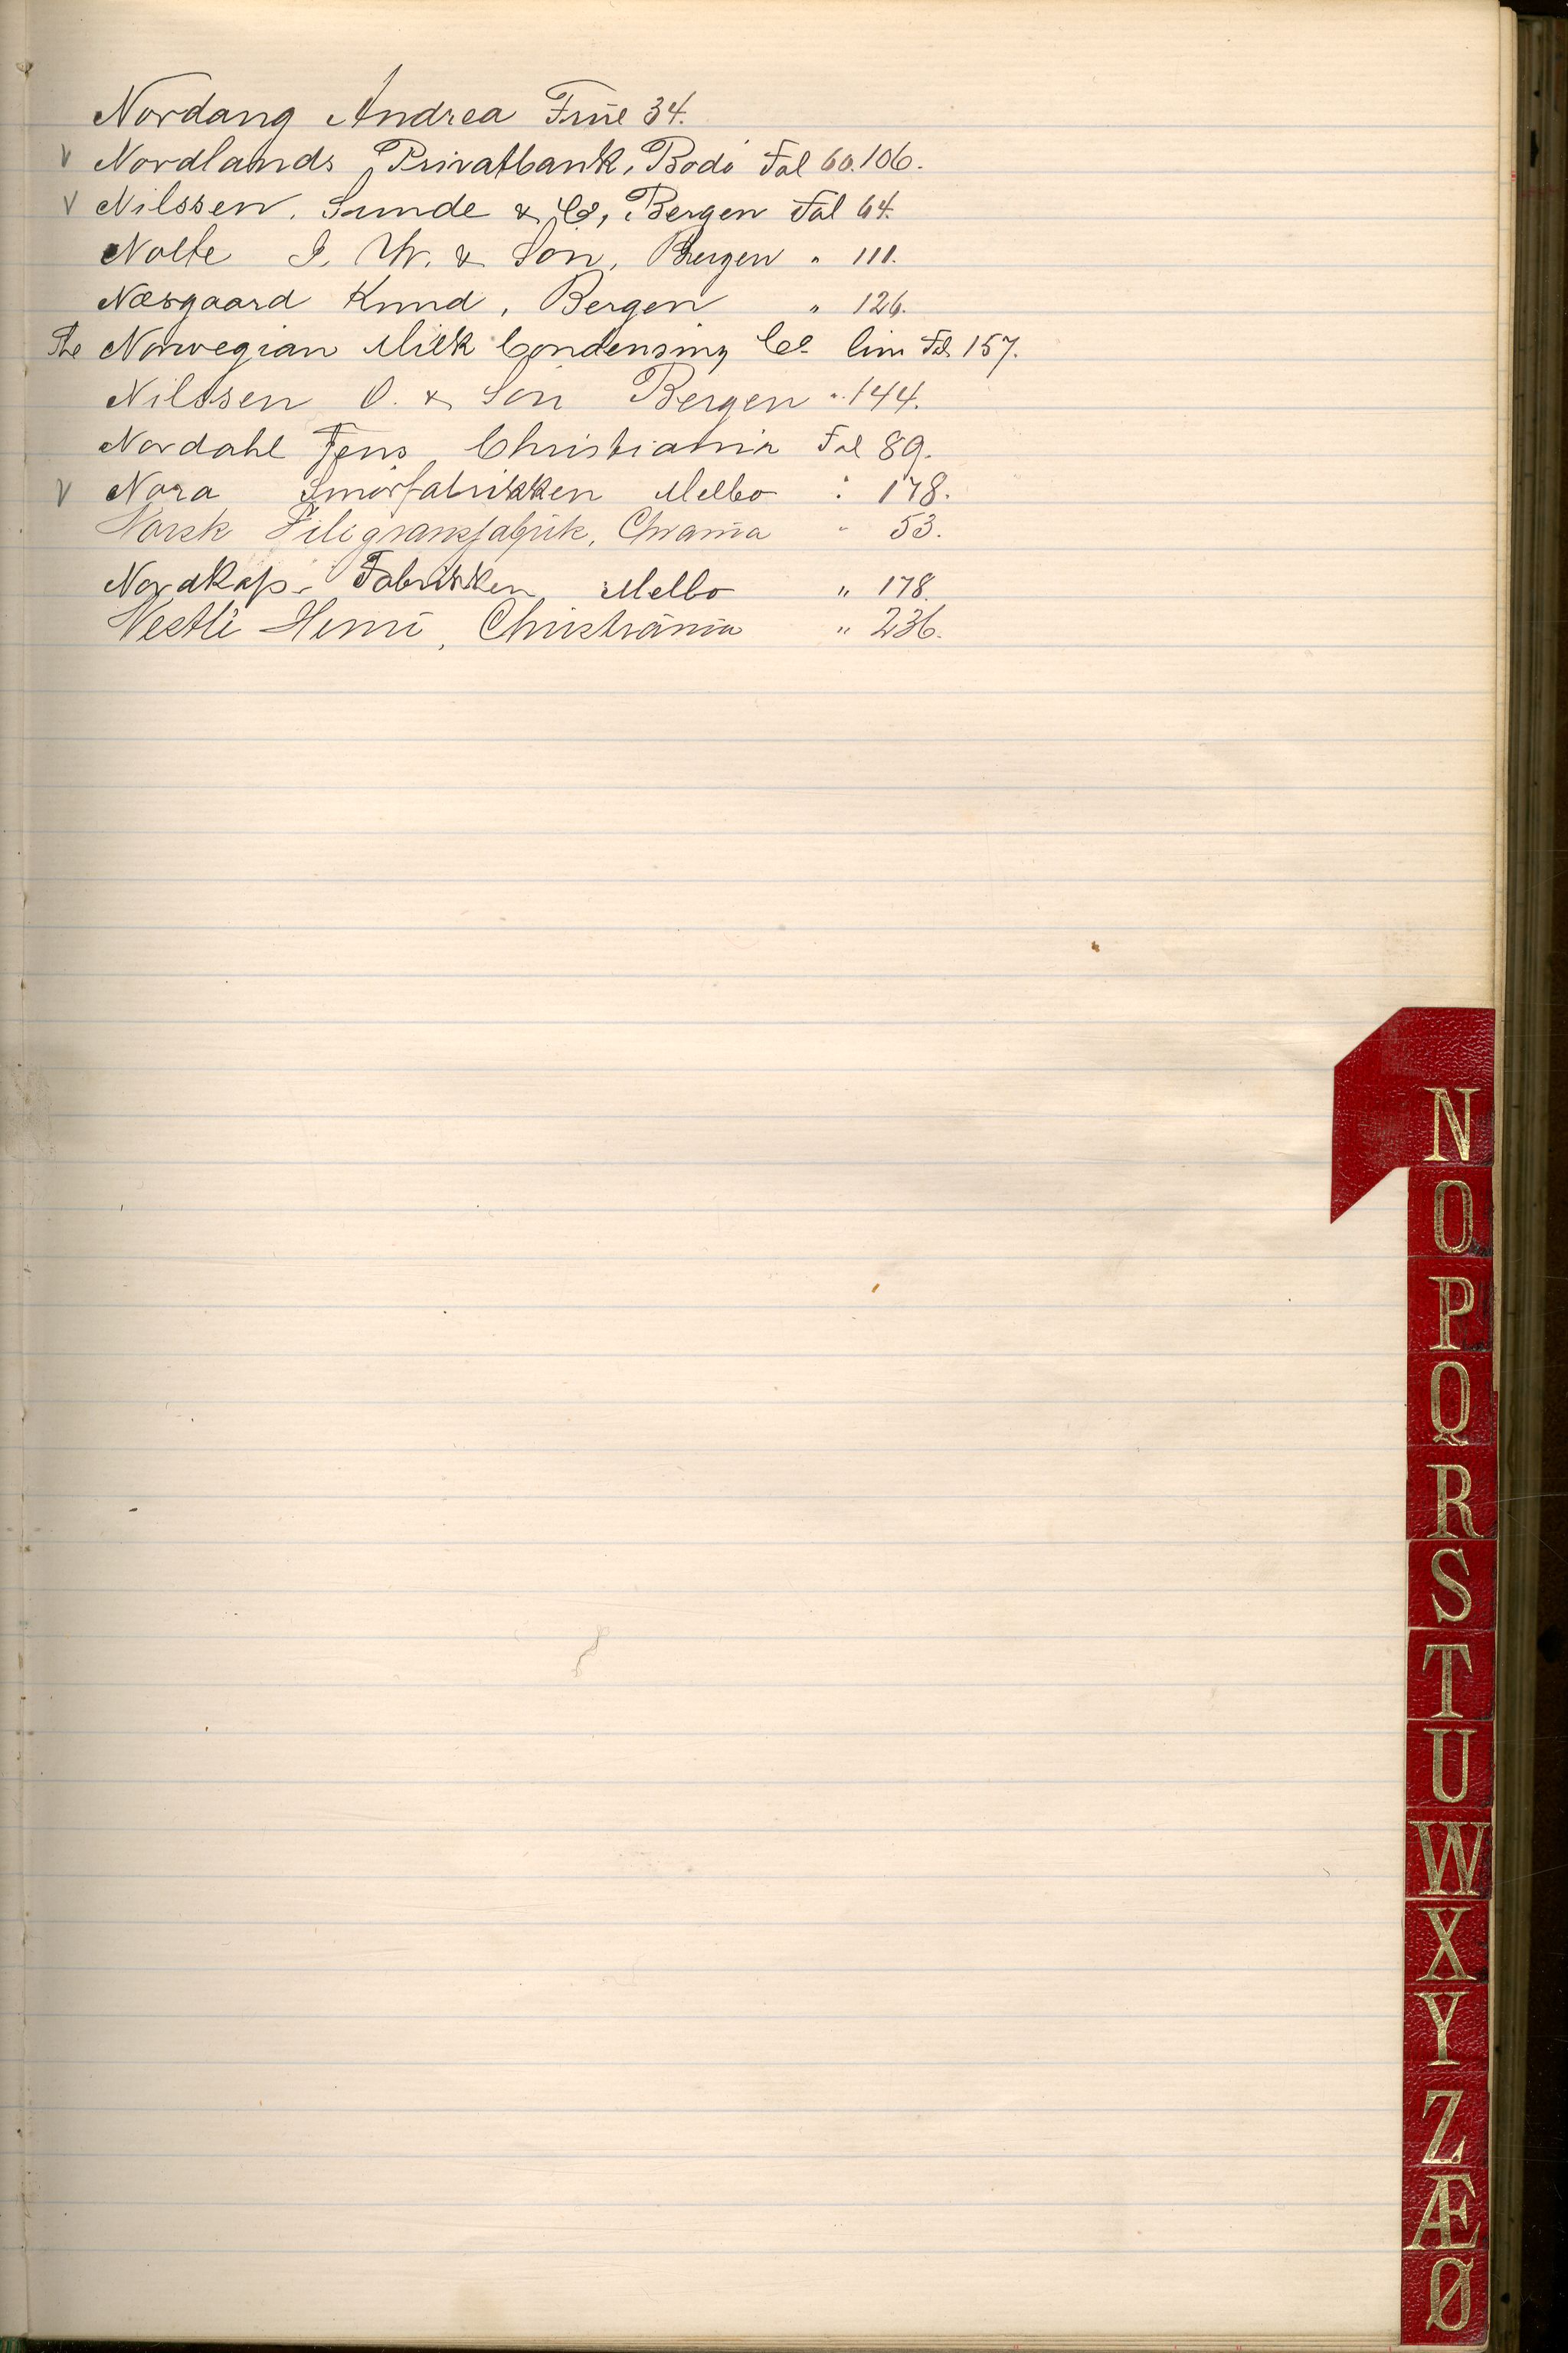 Nordang Andrea Frue 34.
V Nordlands Privatbank, Bodö Fol 60.106.
V Nilssen, Sunde & Co, Bergen Fol 64.
Nolte I. W. & Son, Bergen " 111.
Næsgaard Knud, Bergen " 126.
The Norwegian Milk Condensing Co lim Fol. 157.
Nilssen O. & Sön Bergen " 144.
Nordahl Jens, Christiania Fol 89.
V Nora Smörfabrikken Melbo " 178.
Norsk Filigransfabrik, Chrania " 53.
Nordkap-Fabrikken Melbo " 178.
Nestli Henri, Christiania " 236.
N
O
P
Q
R
S
T
U
W
X
Y
Z
Æ
Ø